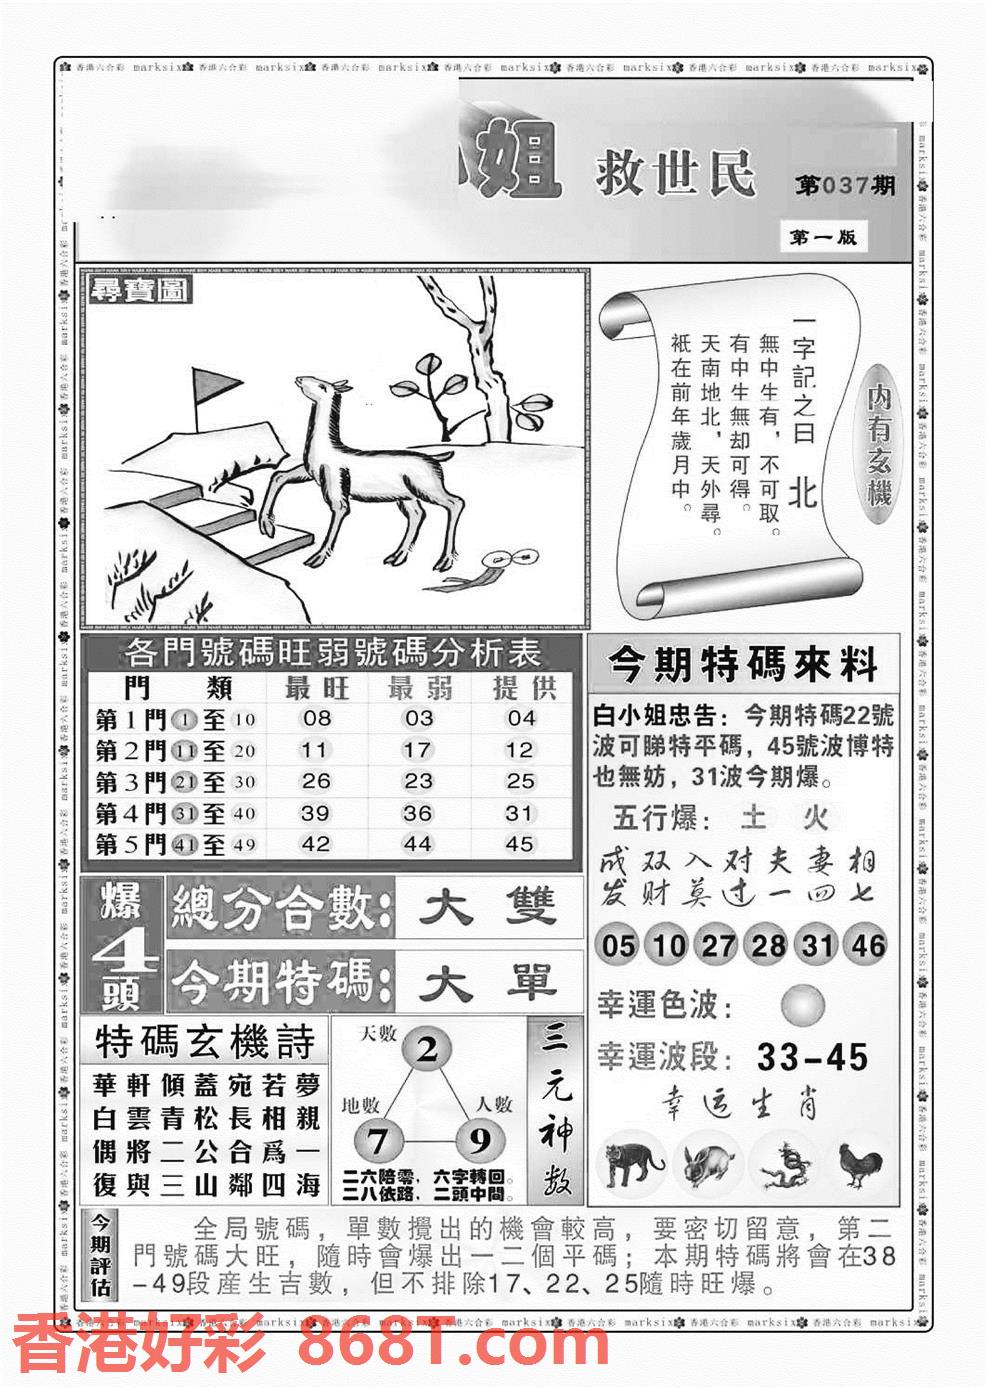 香港六合彩 marksix 香港六合彩 marksix 香港六合彩 marksix 香港六合彩 marksix 香港六合彩 marksix 香港六合彩 marksix 香港六合彩 marksix
姐 救世民 第037期
第一版
尋寶圖
一字記之曰 北
無中生有，不可取。
有中生無却可得。
天南地北，天外尋。
衹在前年歲月中。
内有玄機
各門號碼旺弱號碼分析表
門 類 最旺 最弱 提供
第1門 1 至 10 08 03 04
第2門 11 至 20 11 17 12
第3門 21 至 30 26 23 25
第4門 31 至 40 39 36 31
第5門 41 至 49 42 44 45
今期特碼來料
白小姐忠告：今期特碼22號
波可睇特平碼，45號波博特
也無妨，31波今期爆。
五行爆：土 火
成双入对夫妻相
发财莫过一四七
05 10 27 28 31 46
幸運色波：
幸運波段：33-45
幸运生肖
爆4頭
總分合數：大 雙
今期特碼：大 單
特碼玄機詩
華軒傾蓋宛若夢
白雲青松長相親
偶將二公合爲一
復與三山鄰四海
天數 2
地數 7
人數 9
二六陪零，六字轉回。
二八依路，二頭中間。
三元神数
今期評估
全局號碼，單數攪出的機會較高，要密切留意，第二
門號碼大旺，隨時會爆出一二個平碼；本期特碼將會在38
-49段産生吉數，但不排除17、22、25隨時旺爆。
香港六合彩 marksix 香港六合彩 marksix 香港六合彩 marksix 香港六合彩 marksix 香港六合彩 marksix 香港六合彩 marksix 香港六合彩 marksix
香港好彩 8681.com